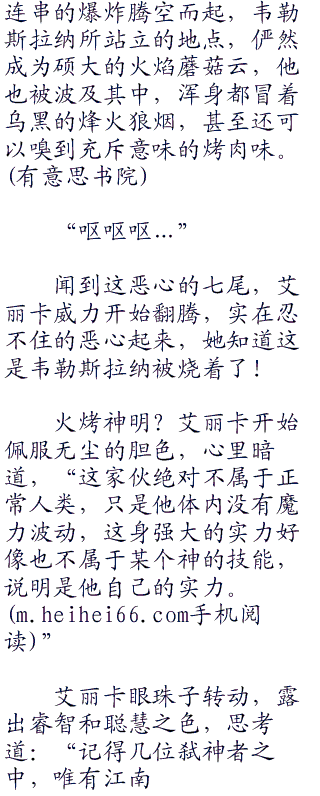 连串的爆炸腾空而起，韦勒
斯拉纳所站立的地点，俨然
成为硕大的火焰蘑菇云，他
也被波及其中，浑身都冒着
乌黑的烽火狼烟，甚至还可
以嗅到充斥意味的烤肉味。
(有意思书院)
“呕呕呕…”
闻到这恶心的七尾，艾
丽卡威力开始翻腾，实在忍
不住的恶心起来，她知道这
是韦勒斯拉纳被烧着了！
火烤神明？艾丽卡开始
佩服无尘的胆色，心里暗
道，“这家伙绝对不属于正
常人类，只是他体内没有魔
力波动，这身强大的实力好
像也不属于某个神的技能，
说明是他自己的实力。
(m.heihei66.com手机阅
读)”
艾丽卡眼珠子转动，露
出睿智和聪慧之色，思考
道：“记得几位弑神者之
中，唯有江南